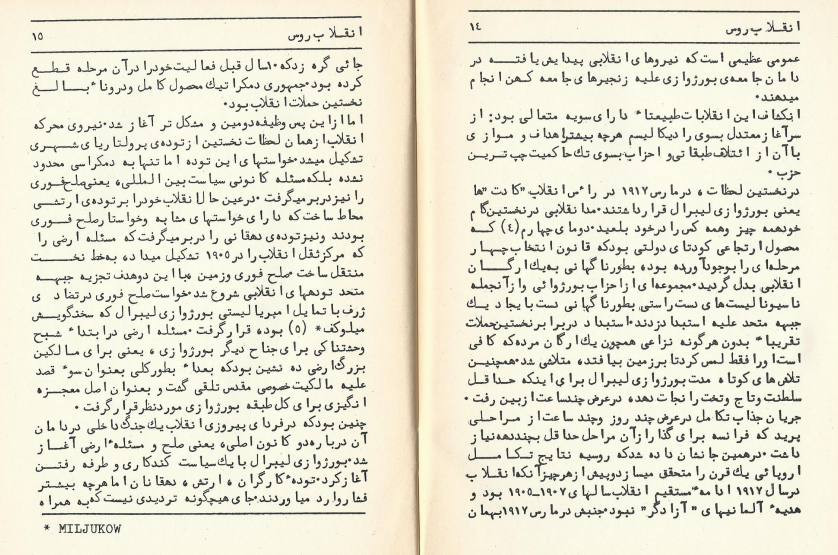 انقلاب روس ١٤
عمومی عظیمی است که نیروهای انقلابی پیدایش یافته در
دامان جامعه‌ی بورژوازی علیه زنجیرهای جامعه کهن انجام
میدهند.
انکشاف این انقلابات طبیعتاً دارای سویه متعالی بود: از
سرآغاز معتدل بسوی رادیکالیسم هرچه بیشتر اهداف و موازی
با آن از ائتلاف طبقاتی و احزاب بسوی تک حاکمیت چپ ترین
حزب.
در نخستین لحظات، در مارس ١٩١٧ در رأس انقلاب "کادت"ها
یعنی بورژوازی لیبرال قرار داشتند. مد انقلابی در نخستین گام
خود همه چیز و همه کس را در خود بلعید. دومای چهارم (٤) که
محصول ارتجاعی کودتای دولتی بود که قانون انتخاب چهار
مرحله‌ای را بوجود آورده بود، بطور ناگهانی به یک ارگان
انقلابی بدل گردید. مجموعه‌ای از احزاب بورژوائی و از آنجمله
ناسیونالیست‌های دست راستی بطور ناگهانی دست بایجاد یک
جبهه متحد علیه استبداد زدند. استبداد در برابر نخستین حملات
تقریباً بدون هرگونه نزاعی همچون یک ارگان مرده که کافی
است او را فقط لمس کرد تا بر زمین بیافتد، متلاشی شد. همچنین
تلاش های کوتاه مدت بورژوازی لیبرال برای اینکه حداقل
سلطنت و تاج و تخت را نجات دهد، در عرض چند ساعت از بین رفت.
جریان جذاب تکامل در عرض چند روز و چند ساعت از مراحلی
پرید که فرانسه برای گذار از آن مراحل حداقل به چند دهه نیاز
داشت. در همین جا نشان داده شد که روسیه نتایج تکامل
اروپائی یک قرن را متحقق میسازد و پیش از هر چیز آنکه انقلاب
در سال ١٩١٧ ادامه مستقیم انقلاب سالهای ١٩٠٧-١٩٠٥ بود و
هدیه آلمانیهای "آزادگر" نبود. جنبش در مارس ١٩١٧ بهمان
انقلاب روس ١٥
جائی گره زد که ١٠ سال قبل فعالیت خود را در آن مرحله قطع
کرده بود. جمهوری دمکراتیک محصول کامل و درون بالغ
نخستین حملات انقلاب بود.
اما از این پس وظیفه دومین و مشکل تر آغاز شد. نیروی محرکه
انقلاب از همان لحظات نخستین از توده‌ی پرولتاریای شهری
تشکیل میشد. خواستهای این توده اما تنها به دمکراسی محدود
نشده بلکه مسئله کانونی سیاست بین المللی، یعنی صلح فوری
را نیز در بر میگرفت. در عین حال انقلاب خود را بر توده‌ی ارتشی
محاط ساخت که دارای خواستهای مشابه و خواستار صلح فوری
بودند و نیز توده‌ی دهقانی را در بر میگرفت که مسئله ارضی را
که مرکز ثقل انقلاب را در ١٩٠٥ تشکیل میداد، به خط نخست
منتقل ساخت. صلح فوری و زمین، با این دو هدف تجزیه جبهه
متحد توده‌های انقلابی شروع شد. خواست صلح فوری در تضادی
ژرف با تمایل امپریالیستی بورژوازی لیبرال که سخنگویش
میلوکف* (٥) بود، قرار گرفت. مسئله ارضی در ابتداء شبح
وحشتناکی برای جناح دیگر بورژوازی، یعنی برای مالکین
بزرگ ارضی ده نشین بود که بعداً بطور کلی بعنوان سوء قصد
علیه مالکیت خصوصی مقدس تلقی گشت و بعنوان اصل معجزه
انگیزی برای کل طبقه بورژوازی مورد نظر قرار گرفت.
چنین بود که در فردای پیروزی انقلاب یک جنگ داخلی در دامان
آن در باره دو کانون اصلی، یعنی صلح و مسئله ارضی آغاز
شد. بورژوازی لیبرال با یک سیاست کندکاری و طفره رفتن
آغاز کرد. توده کارگران، ارتش، دهقانان اما هرچه بیشتر
فشار وارد میآوردند. جای هیچگونه تردیدی نیست که به همراه
* MILJUKOW